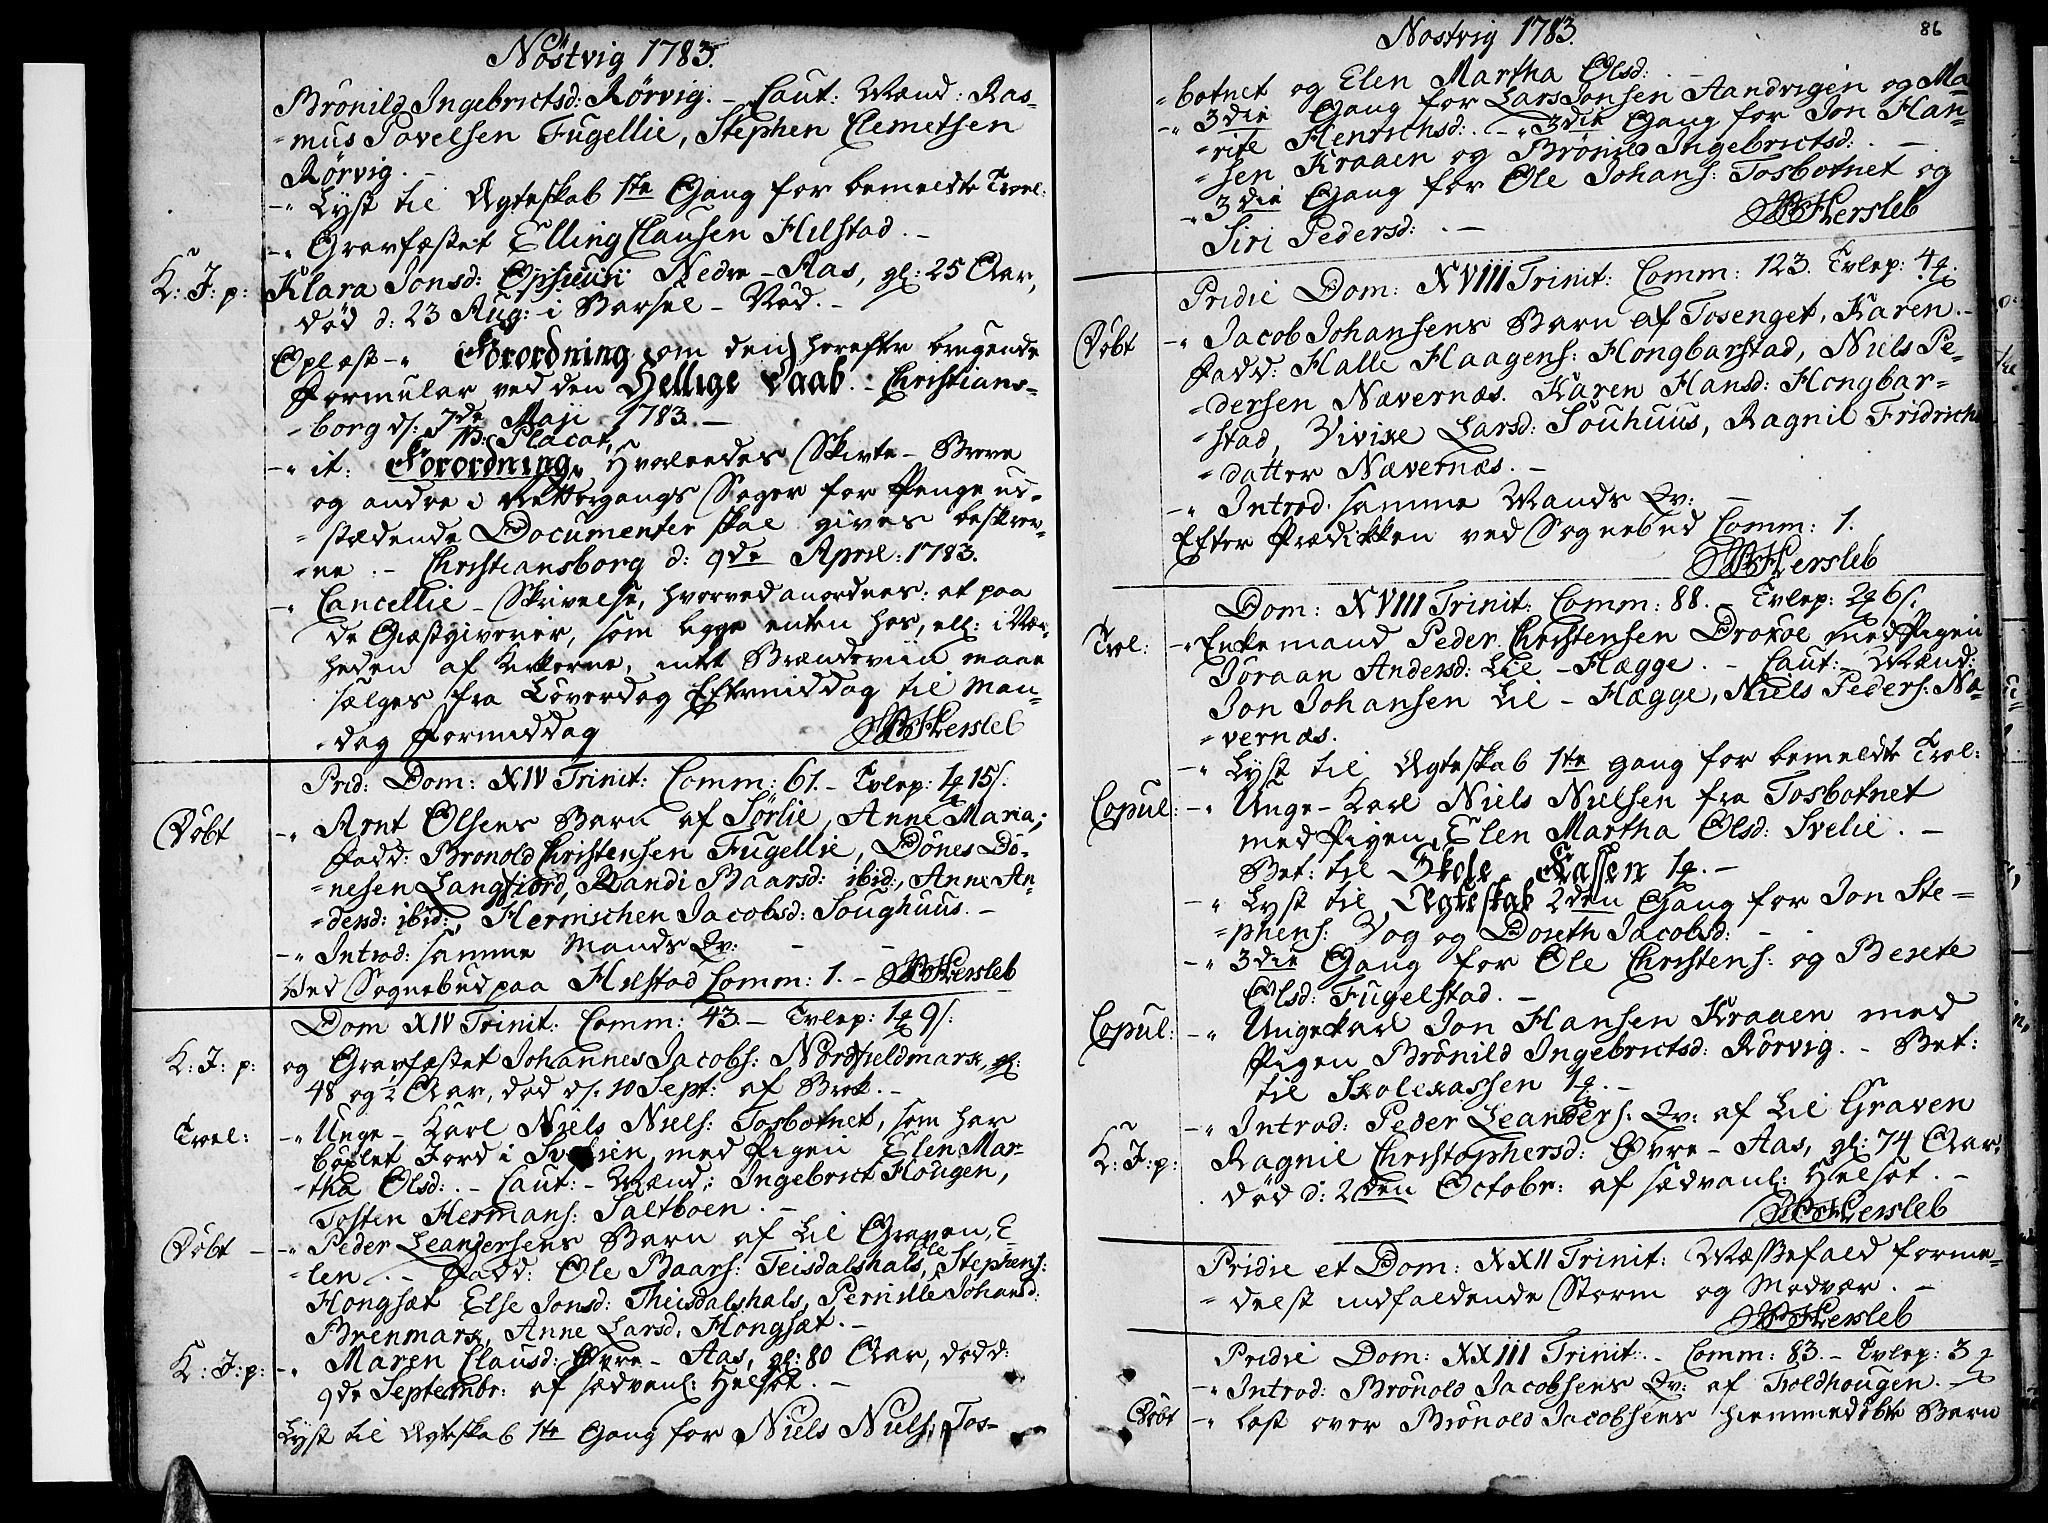 Nöstvig 1783.
Brönild Ingebrictsd: Rörvig. – Caut: Mænd: Ras-
-mus Povelsen Fugellie, Stephen Clemetsen
Rörvig. –
-" Lyst til Ægteskab 1ste Gang for bemeldte Trol:
-" Gravfæstet Elling Clausen Hilstad. –
K: J: p: Klara Jonsd: Opsuus Nedre-Aas, gl: 25 Aar,
död d: 23 Aug: i Barsel-Nöd. –
Oplæst -" Forordning om den herefter brugende
Formular ved den Hellige Daab. – Christians-
-borg d: 7de Maji 1783. –
NB: Placat,
-" it: Forordning, Hvorledes Skifte-Breve
og andre i Rettergangs Sager for Penge ud-
-stædende Documenter skal gives beskrev-
-ne. – Christiansborg d: 9de April: 1783.
-" Cancellie-Skrivelse, hvorved anordnes: at paa
de Giæstgiverier, som ligge enten hos, ell: i Nær-
heden af Kirkerne, intet Brændeviin maae
sælges fra Löverdag Eftermiddag til Man-
-dag Formiddag HHersleb
Prid: Dom: XIV Trinit: Comm: 61. – Tvlep: 1 15 s.
Döbt -" Arnt Olsens Barn af Sörlie, Anne Maria;
Fadd: Bronold Christensen Fugellie, Dönes Dö-
-nesen Langfiord, Randi Baarsd: ibid:, Anne An-
-dersd: ibid:, Hermichen Jacobsd: Soughuus. –
-" Introd: samme Mands Qv: –
Ved Sognebud paa Hilstad Comm: 1. – HHersleb
Dom XIV Trinit: Comm: 43. – Tvlep: 1 9 s.
K: J: p: og Gravfæstet Johannes Jacobs: Nordfieldmark, gl:
48 og ½ Aar, död d: 10 Sept: af Brok. –
Trol: -" Unge-Karl Niels Niels: Tosbotnet, som har
böxlet Jord i Svelien, med Pigen Elen Mar-
-tha Olsd: – Caut:-Mænd: Ingebrict Hougen,
Tosten Hermans: Saltboen. –
Döbt -" Peder Leandersens Barn af Lil Graven, E-
-len. – Fadd: Ole Baars: Teisdalshals, Ole Stephens:
Hongsæt Else Jonsd: Theisdalshals, Pernille Johansd:
Brenmark, Anne Larsd: Hongsæt. –
K: J: p: -" Maren Clausd: Övre-Aas, gl: 80 Aar, död d:
9de Septembr: af sædvanl: Helsot. –
Lyst til Ægteskab 1ste Gang for Niels Niels: Tos-
86
Nostvig 1783.
-botnet og Elen Martha Olsd: –
-" 3die Gang for Lars Jonsen Aandvigen og Ma-
-rite Henrichsd: – " 3die Gang for Jon Han-
-sen Kraaen og Brönild Ingebrictsd: –
-" 3die Gang for Ole Johans: Tosbotnet og
Siri Pedersd: – HHersleb
Pridie Dom: XVIII Trinit: Comm: 123. Tvlep: 4
Döbt -" Jacob Johansens Barn af Tosenget, Karen. –
Fadd: Halle Haagens: Hongbarstad, Niels Pe-
-dersen Nævernæs. Karen Hansd: Hongbar-
-stad, Vivike Larsd: Souhuus, Ragnil Fridrichs
-datter Nævernæs. –
-" Introd: samme Mands Qv: –
Efter Prædikken ved Sognebud Comm: 1.
HHersleb
Dom: XVIII Trinit: Comm: 88. – Tvlep: 2 6 s.
Trol: -" Enkemand Peder Christensen Droxoe med Pigen
Joraan Andersd: Lil-Hægge. – Caut:-Mænd:
Jon Johansen Lil-Hægge, Niels Peders: Næ-
-vernæs.
-" Lyst til Ægteskab 1ste gang for bemeldte Trol:
Copul: -" Unge-Karl Niels Nielsen fra Tosbotnet
med Pigen Elen Martha Olsd: Svelie. –
Bet: til Skole Kassen 1. –
-" Lyst til Ægteskab 2den Gang for Jon Ste-
-phens: Vog og Doreth Jacobsd: –
-" 3die Gang for Ole Christens: og Berete
Olsd: Fugelstad. –
Copul: -" Ungekarl Jon Hansen Kraaen med
Pigen Brönild Ingebrictsd: Rörvig. – Bet:
til Skolekassen 1. –
-" Introd: Peder Leanders: Qv: af Lil Graven
K: J: p: Ragnil Christophersd: Övre-Aas, gl: 74 Aar,
död d: 2den Octobr: af sædvanl: Helsot. –
HHersleb
Pridie et Dom: XXII Trinit: Messefald forme-
-delst indfaldende Storm og Modvær. –
HHersleb
Pridie Dom: XXIII Trinit: – Comm: 83. – Tvlep: 3
-" Introd: Brönold Jacobsens Qv: af Foldhougen. –
Döbt -" læst over Brönold Jacobsens hiemmedöbte Barn